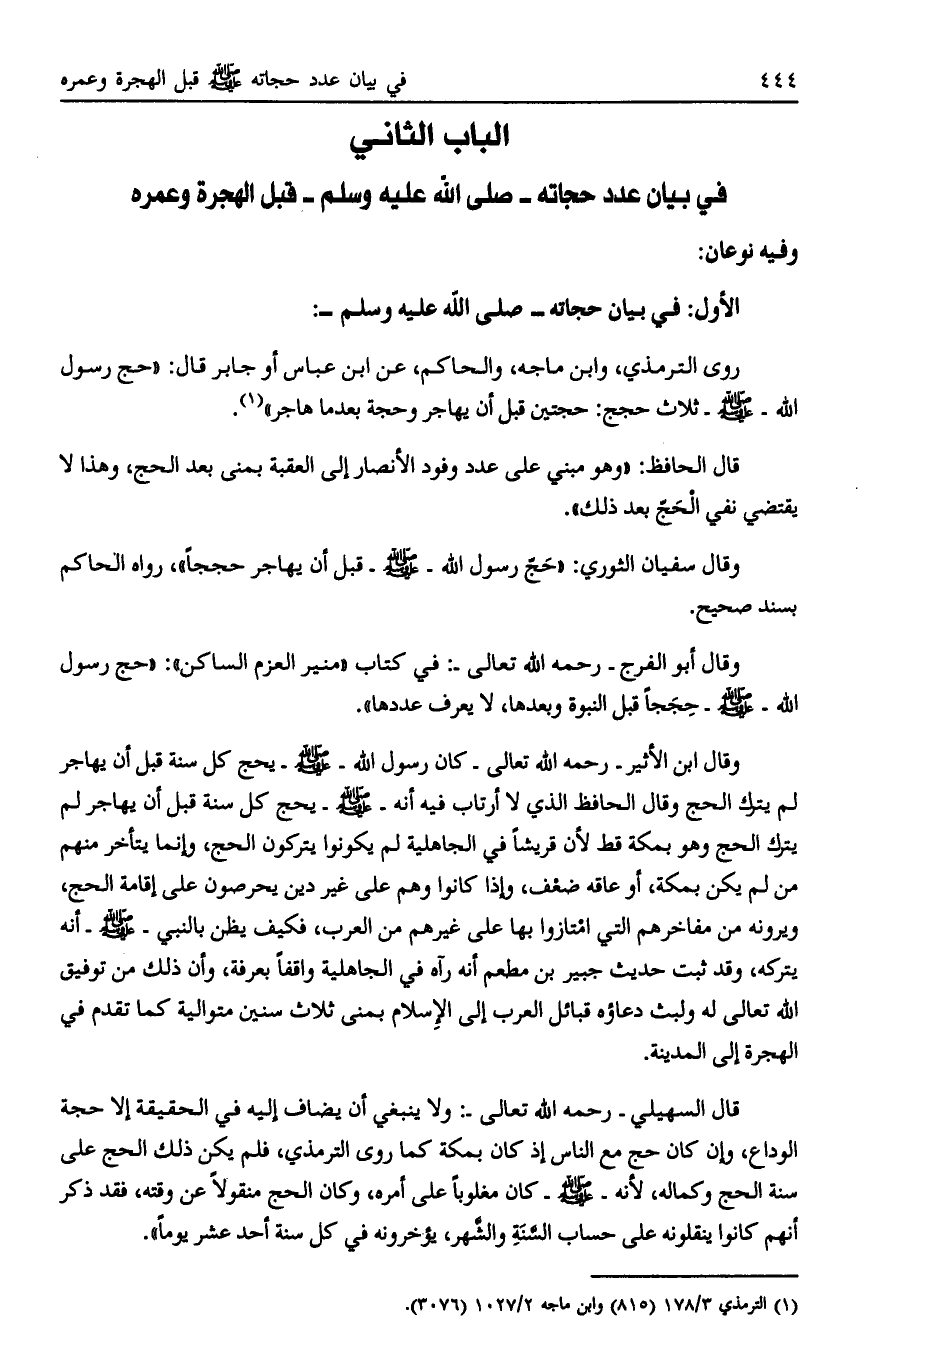 ٤٤٤ في بيان عدد حجاته ﷺ قبل الهجرة وعمره
الباب الثاني
في بيان عدد حجاته ـ صلى الله عليه وسلم ـ قبل الهجرة وعمره
وفيه نوعان:
الأول: في بيان حجاته ـ صلى اللّه عليه وسلم ـ:
روى الترمذي، وابن ماجه، والحاكم، عن ابن عباس أو جابر قال: «حج رسول
الله ـ ﷺ ـ ثلاث حجج: حجتين قبل أن يهاجر وحجة بعدما هاجر»(١).
قال الحافظ: «وهو مبني على عدد وفود الأنصار إلى العقبة بمنى بعد الحج، وهذا لا
يقتضي نفي الْحَجّ بعد ذلك».
وقال سفيان الثوري: «حَجّ رسول الله ـ ﷺ ـ قبل أن يهاجر حججاً»، رواه الحاكم
بسند صحيح.
وقال أبو الفرج ـ رحمه الله تعالى ـ: في كتاب «منير العزم الساكن»: «حج رسول
الله ـ ﷺ ـ حِجَجاً قبل النبوة وبعدها، لا يعرف عددها».
وقال ابن الأثير ـ رحمه الله تعالى ـ كان رسول الله ـ ﷺ ـ يحج كل سنة قبل أن يهاجر
لم يترك الحج وقال الحافظ الذي لا أرتاب فيه أنه ـ ﷺ ـ يحج كل سنة قبل أن يهاجر لم
يترك الحج وهو بمكة قط لأن قريشاً في الجاهلية لم يكونوا يتركون الحج، وإنما يتأخر منهم
من لم يكن بمكة، أو عاقه ضعْف، وإذا كانوا وهم على غير دين يحرصون على إقامة الحج،
ويرونه من مفاخرهم التي امْتازوا بها على غيرهم من العرب، فكيف يظن بالنبي ـ ﷺ ـ أنه
يتركه، وقد ثبت حديث جبير بن مطعم أنه رآه في الجاهلية واقفاً بعرفة، وأن ذلك من توفيق
الله تعالى له ولبث دعاؤه قبائل العرب إلى الإِسلام بمنى ثلاث سنين متوالية كما تقدم في
الهجرة إلى المدينة.
قال السهيلي ـ رحمه الله تعالى ـ: ولا ينبغي أن يضاف إليه في الحقيقة إلا حجة
الوداع، وإن كان حج مع الناس إذ كان بمكة كما روى الترمذي، فلم يكن ذلك الحج على
سنة الحج وكماله، لأنه ـ ﷺ ـ كان مغلوباً على أمره، وكان الحج منقولاً عن وقته، فقد ذكر
أنهم كانوا ينقلونه على حساب السَّنَةِ والشَّهر، يؤخرونه في كل سنة أحد عشر يوماً».
(١) الترمذي ١٧٨/٣ (٨١٥) وابن ماجه ١٠٢٧/٢ (٣٠٧٦).